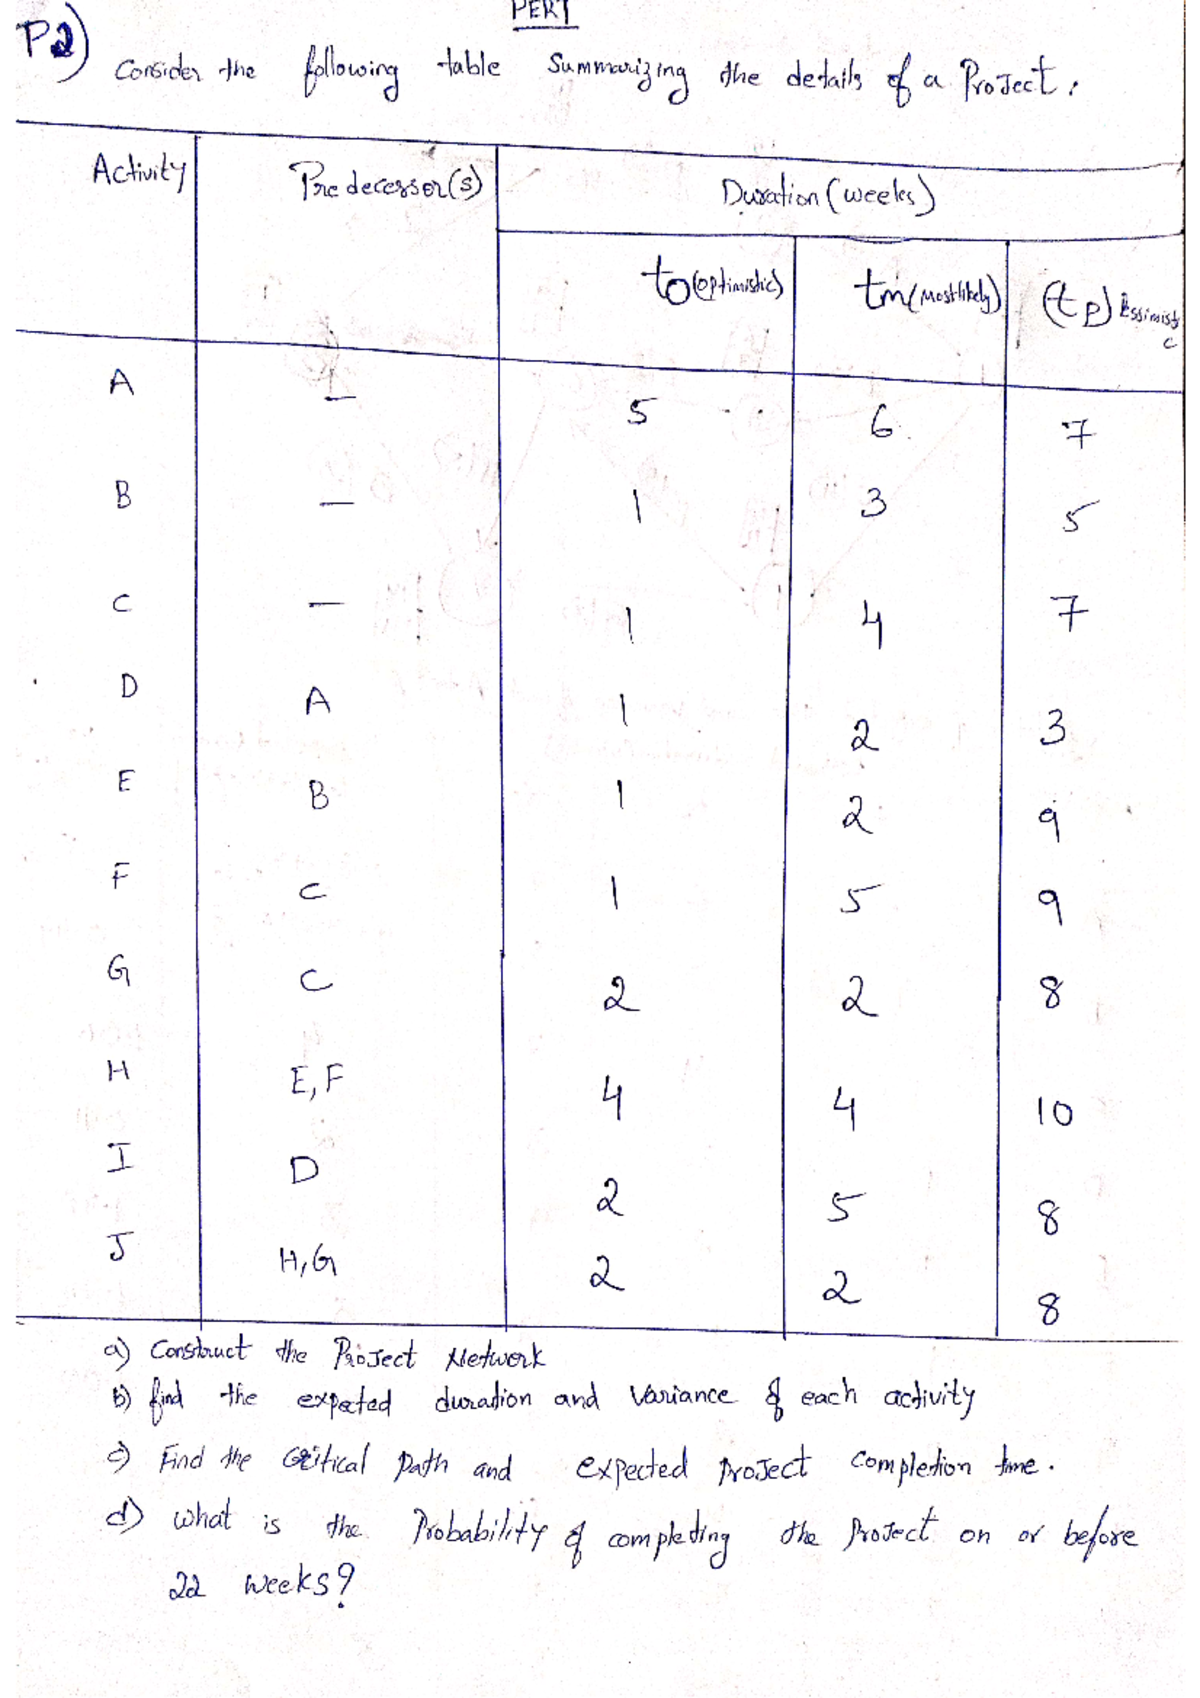 PERT
P2)
Consider the following table Summarizing the details of a Project:
Activity Predecessor(s) Duration (weeks)
to(optimistic) tm(Most likely) (tp) Pessimistic
A — 5 6 7
B — 1 3 5
C — 1 4 7
D A 1 2 3
E B 1 2 9
F C 1 5 9
G C 2 2 8
H E,F 4 4 10
I D 2 5 8
J H,G 2 2 8
a) Construct the Project Network
b) find the expected duration and Variance of each activity
c) Find the Critical Path and expected project completion time.
d) what is the Probability of completing the Project on or before
22 weeks?